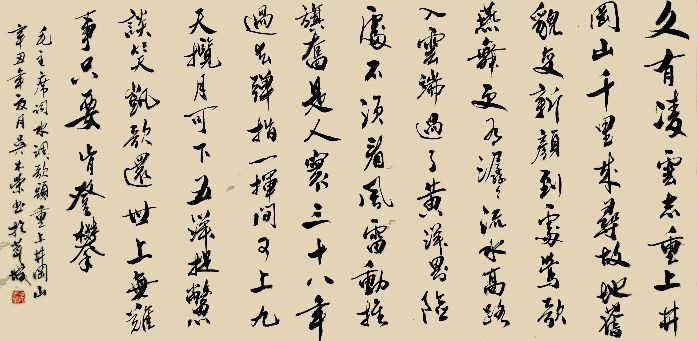 久有凌雲志重上井
岡山千里来尋故地舊
貌變新顏到處鶯歌
燕舞更有潺々流水高路
入雲端過了黃洋界險
處不須看風雷動旌
旗奮是人寰三十八年
過去彈指一揮間可上九
天攬月可下五洋捉鱉
談笑凱歌還世上無難
事只要肯登攀
毛主席詞水調歌頭重上井岡山
辛丑年夏月吳木榮書於